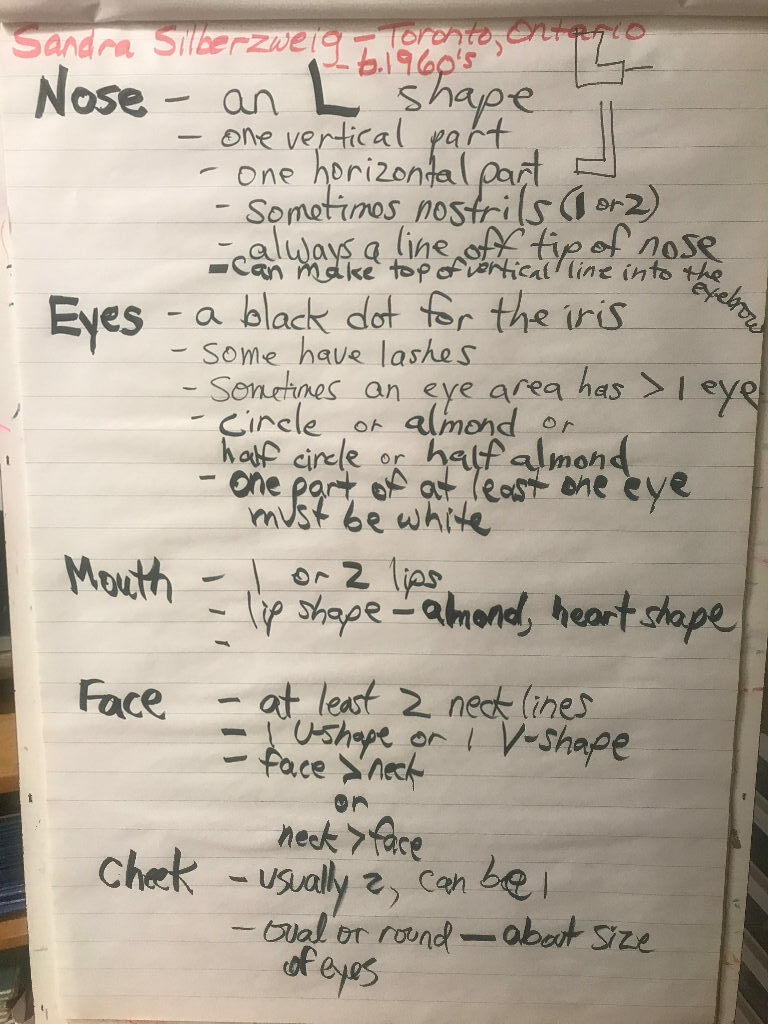 Sandra Silberzweig - Toronto, Ontario
- b.1960's
Nose - an L shape
- one vertical part
- one horizontal part
- sometimes nostrils (1 or 2)
- always a line off tip of nose
- can make top of vertical line into the eyebrow
Eyes - a black dot for the iris
- some have lashes
- Sometimes an eye area has > 1 eye
- circle or almond or
half circle or half almond
- one part of at least one eye
must be white
Mouth - 1 or 2 lips
- lip shape - almond, heart shape
-
Face - at least 2 neck lines
- 1 U-shape or 1 V-shape
- face > neck
or
neck > face
Cheek - usually 2, can be 1
- oval or round - about size
of eyes